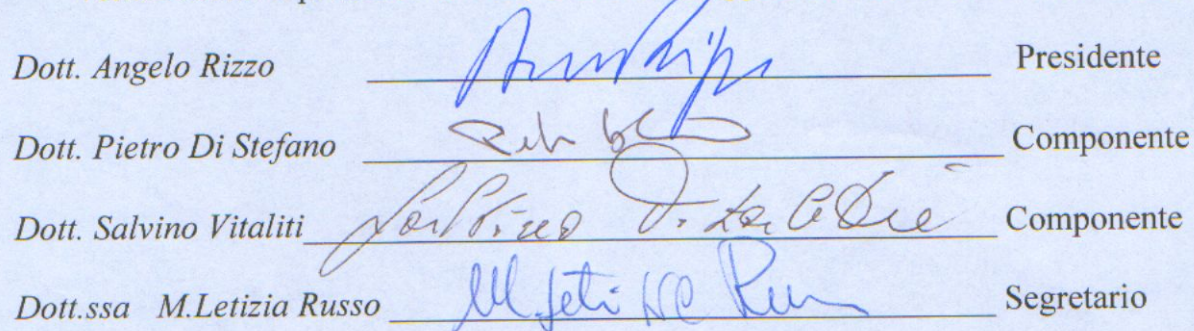 Dott. Angelo Rizzo Presidente
Dott. Pietro Di Stefano Componente
Dott. Salvino Vitaliti Salvino Vitaliti Componente
Dott.ssa M.Letizia Russo M. Letizia Russo Segretario